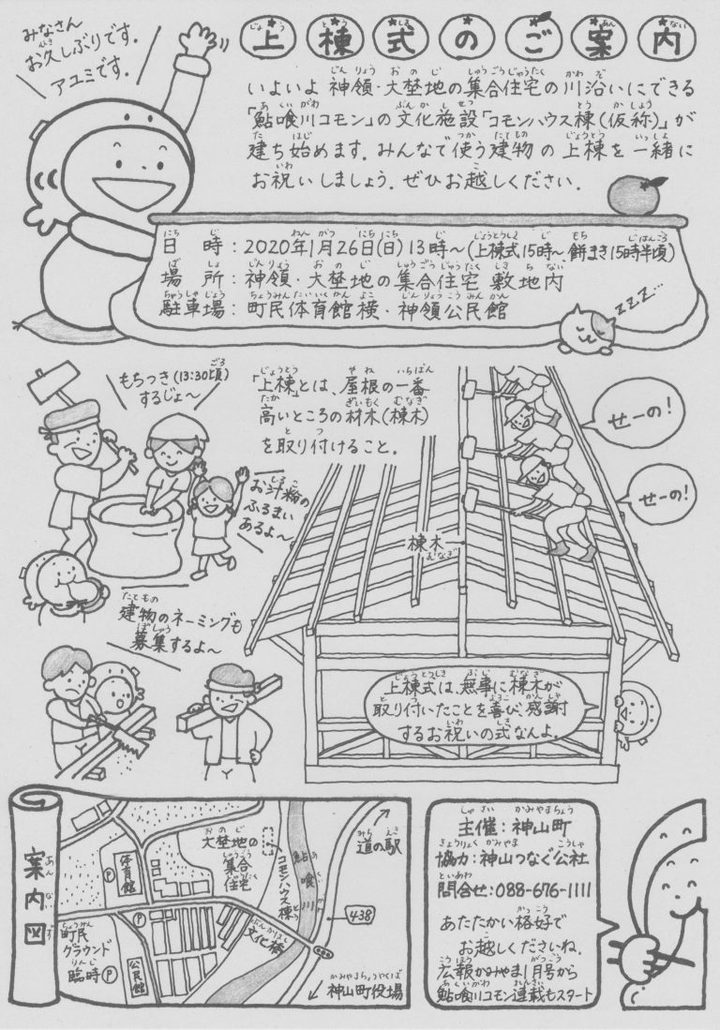 みなさん
お久しぶりです。
アユミです。
上棟式のご案内
いよいよ 神領・大埜地の集合住宅の川沿いにできる
「鮎喰川コモン」の文化施設「コモンハウス棟(仮称)」が
建ち始めます。みんなで使う建物の上棟を一緒に
お祝いしましょう。ぜひお越しください。
日時：2020年1月26日(日)13時～(上棟式15時～ 餅まき15時半頃)
場所：神領・大埜地の集合住宅 敷地内
駐車場：町民体育館横・神領公民館
zzz...
もちつき(13:30頃)
するじょ～
「上棟」とは、屋根の一番
高いところの材木(棟木)
を取り付けること。
せーの!
せーの!
お汁粉の
ふるまい
あるよ～
棟木
むなぎ
建物のネーミングも
募集するよ～
上棟式は、無事に棟木が
取り付いたことを喜び、感謝
するお祝いの式なんよ。
案内図
体育館
P
大埜地の
集合
住宅
コモンハウス棟
鮎喰川
道の駅
438
文化橋
P
町民
グラウンド
臨時P
公民館
神山町役場
主催：神山町
協力：神山つなぐ公社
問合せ：088-676-1111
あたたかい格好で
お越しくださいね。
広報かみやま1月号から
鮎喰川コモン連載もスタート